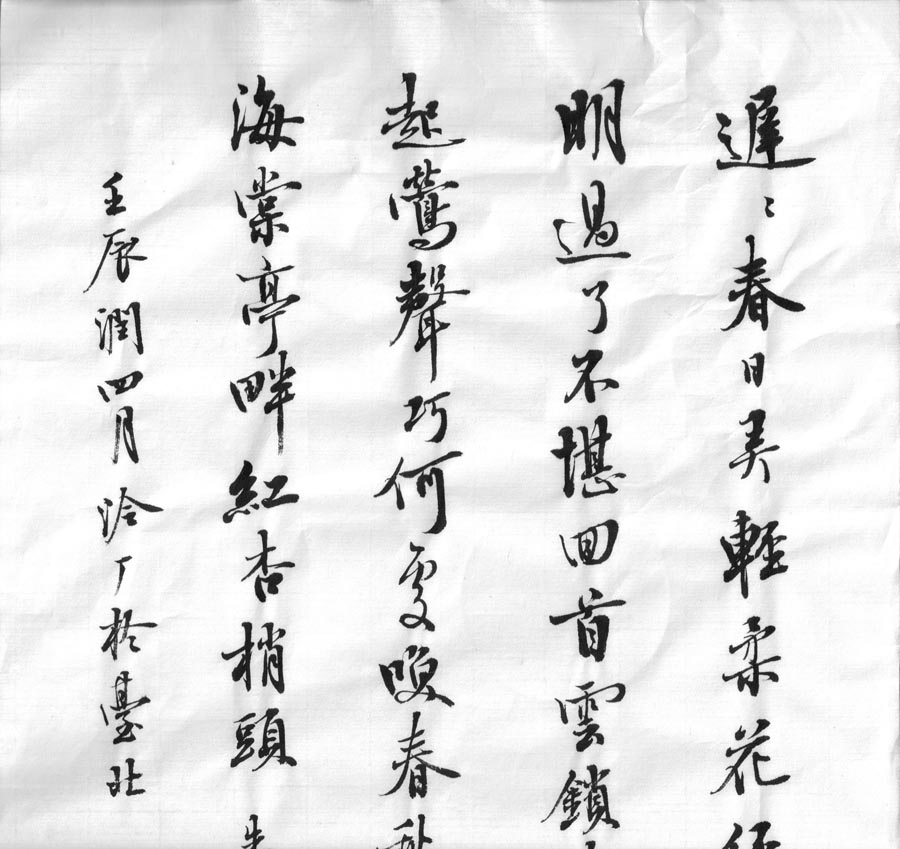 遲〻春日弄輕柔花
明過了不堪回首雲鎖
起鶯聲巧何處喚春
海棠亭畔紅杏梢頭
壬辰潤四月丁於臺北